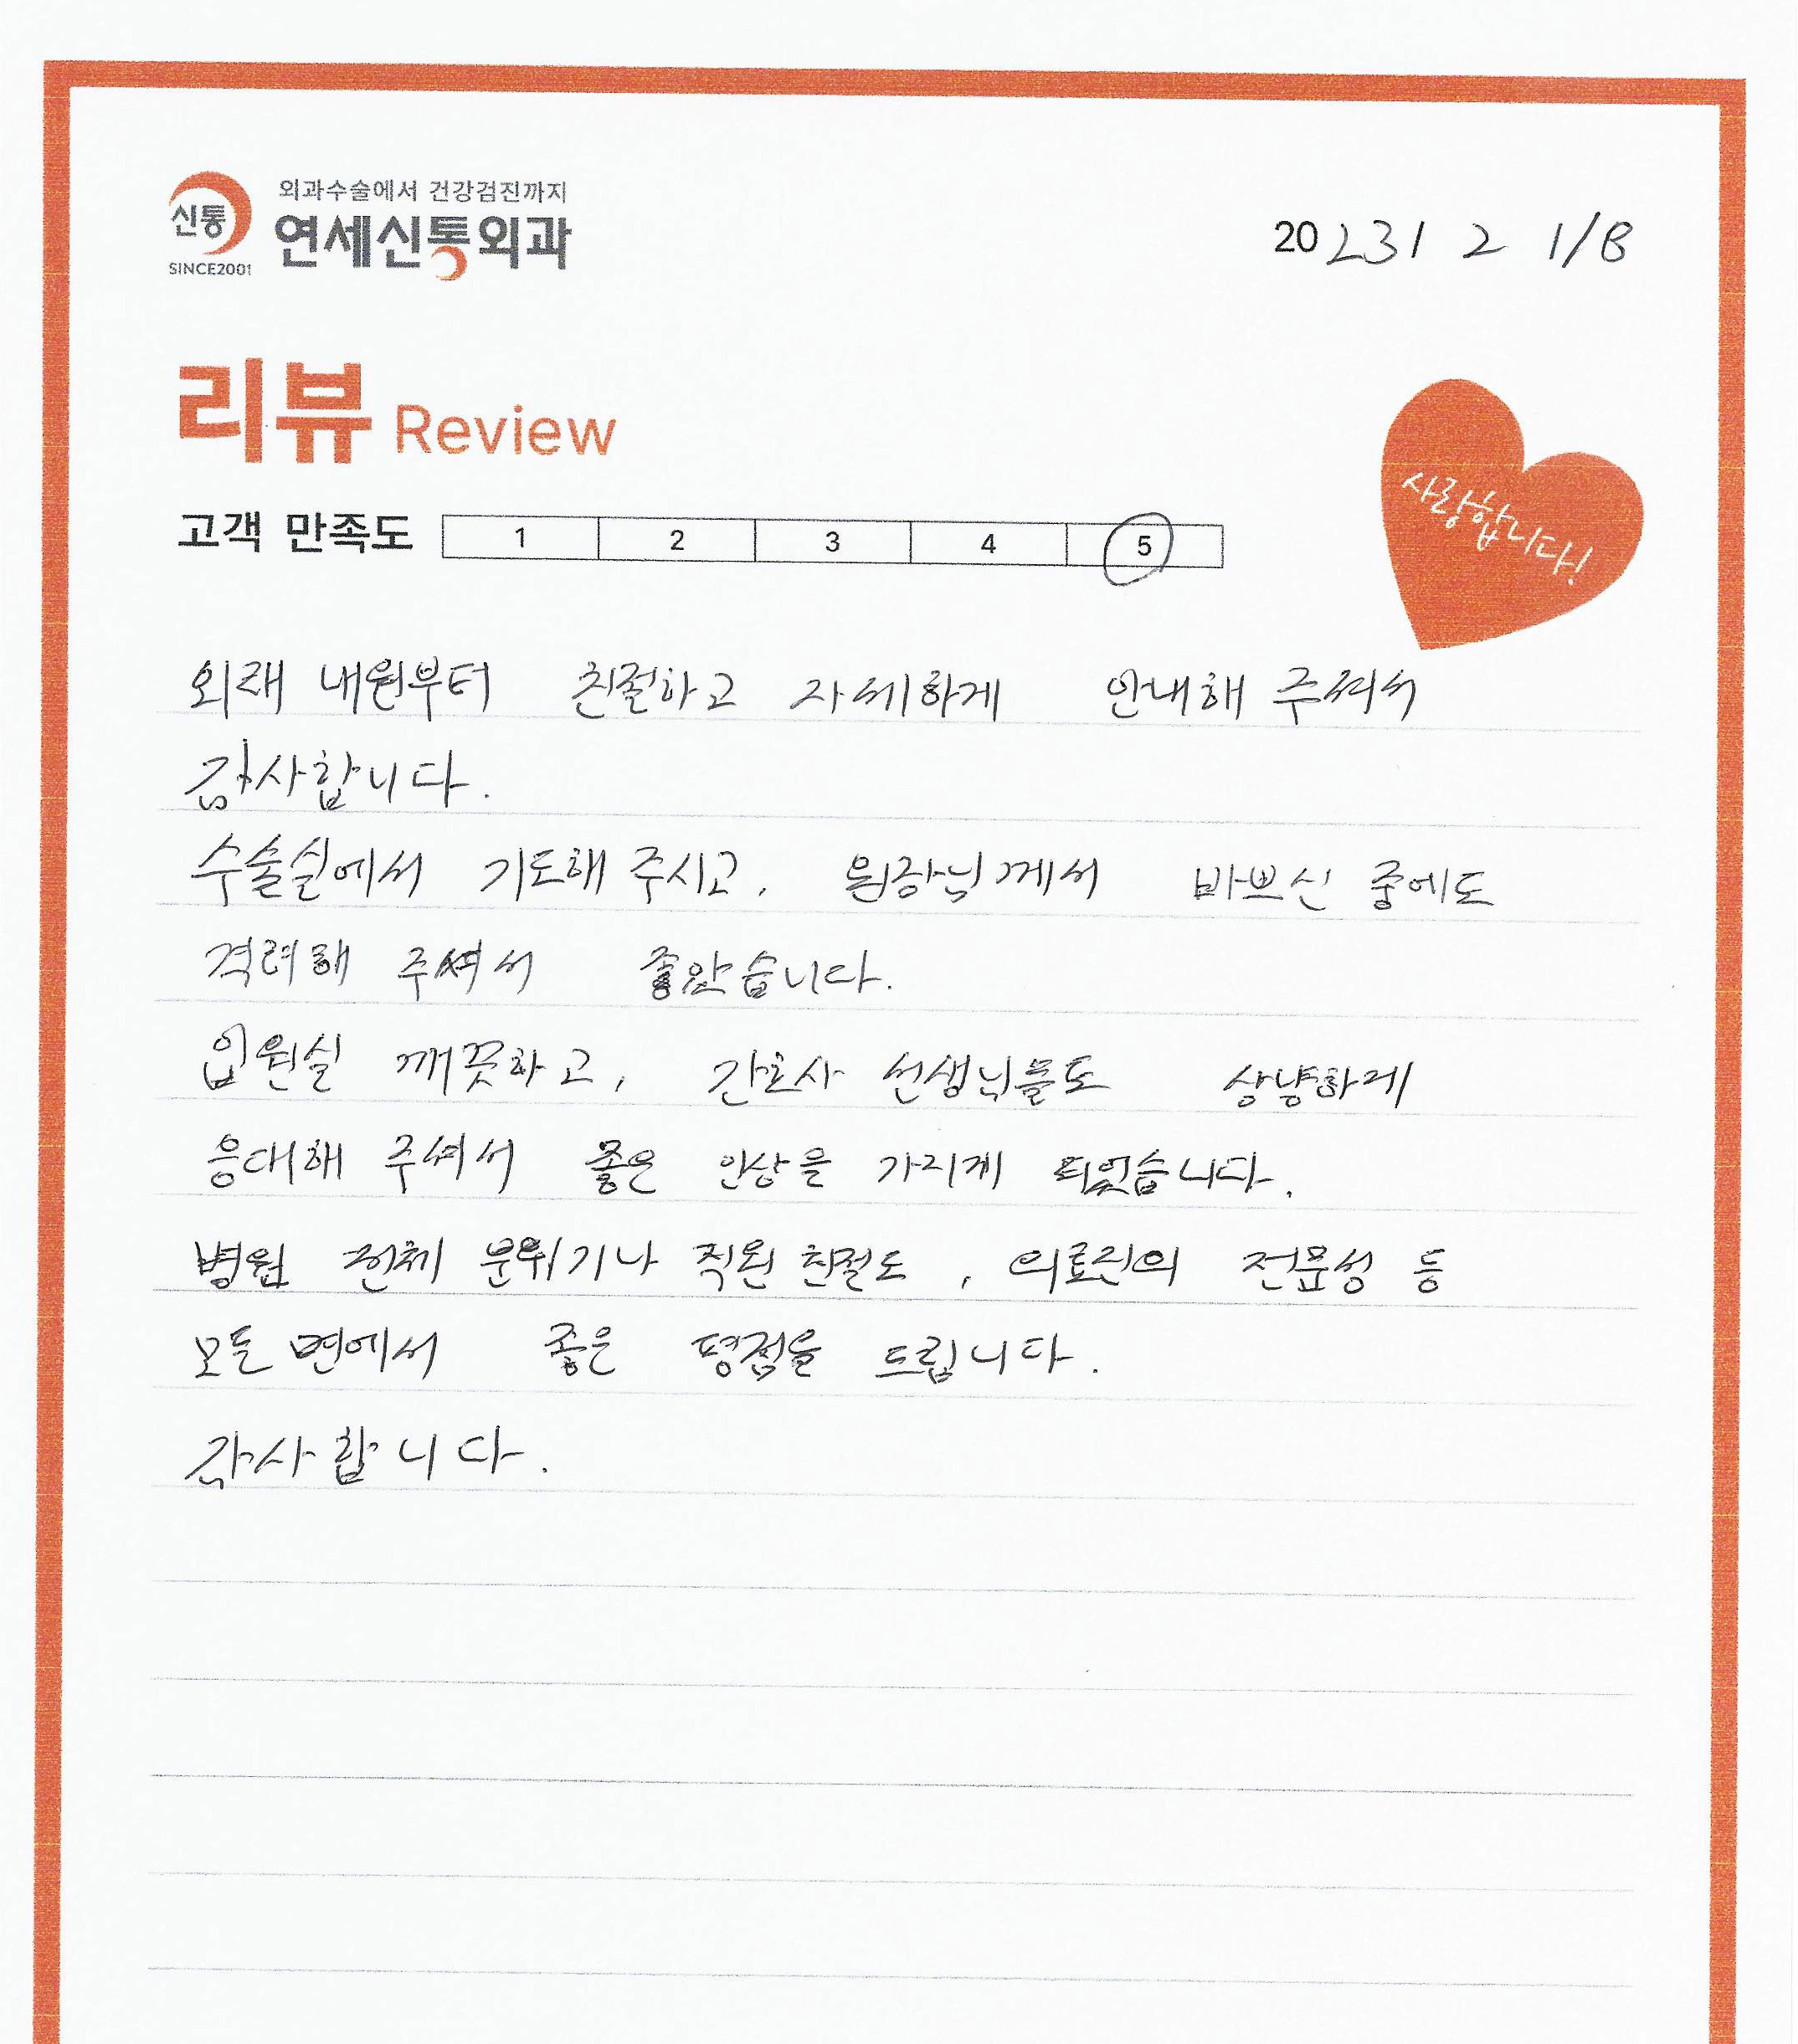 외과수술에서 건강검진까지
신통 연세신통외과
SINCE2001
20231 2 1/8
리뷰 Review
고객 만족도 1 2 3 4 5
사랑합니다!
외래 내원부터 친절하고 자세하게 안내해 주셔서
감사합니다.
수술실에서 기도해 주시고, 원장님께서 바쁘신 중에도
격려해 주셔서 좋았습니다.
입원실 깨끗하고, 간호사 선생님들도 상냥하게
응대해 주셔서 좋은 인상을 가지게 되었습니다.
병원 전체 분위기나 직원 친절도, 의료진의 전문성 등
모든 면에서 좋은 평점을 드립니다.
감사합니다.